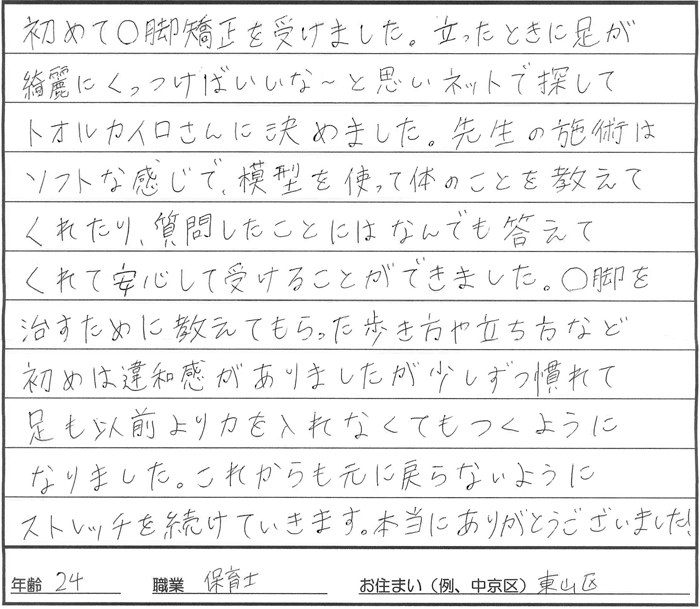 初めて〇脚矯正を受けました。立ったときに足が
綺麗にくっつけばいいな～と思いネットで探して
トオルカイロさんに決めました。先生の施術は
ソフトな感じで、模型を使って体のことを教えて
くれたり、質問したことにはなんでも答えて
くれて安心して受けることができました。〇脚を
治すために教えてもらった歩き方や立ち方など
初めは違和感がありましたが少しずつ慣れて
足も以前より力を入れなくてもつくように
なりました。これからも元に戻らないように
ストレッチを続けていきます。本当にありがとうございました!
年齢 24 職業 保育士 お住まい（例、中京区）東山区